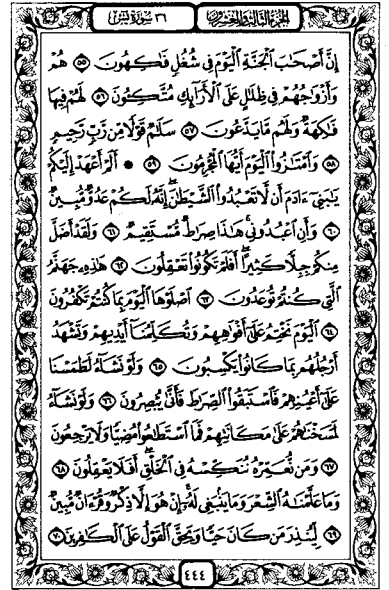 الجزء الثالث والعشرون ٣٦ سورة يس
إِنَّ أَصْحَٰبَ ٱلْجَنَّةِ ٱلْيَوْمَ فِى شُغُلٍ فَٰكِهُونَ ٥٥ هُمْ
وَأَزْوَٰجُهُمْ فِى ظِلَٰلٍ عَلَى ٱلْأَرَآئِكِ مُتَّكِـُٔونَ ٥٦ لَهُمْ فِيهَا
فَٰكِهَةٌ وَلَهُم مَّا يَدَّعُونَ ٥٧ سَلَٰمٌ قَوْلًا مِّن رَّبٍّ رَّحِيمٍ
٥٨ وَٱمْتَٰزُوا۟ ٱلْيَوْمَ أَيُّهَا ٱلْمُجْرِمُونَ ٥٩ أَلَمْ أَعْهَدْ إِلَيْكُمْ
يَٰبَنِىٓ ءَادَمَ أَن لَّا تَعْبُدُوا۟ ٱلشَّيْطَٰنَ ۖ إِنَّهُۥ لَكُمْ عَدُوٌّ مُّبِينٌ
٦٠ وَأَنِ ٱعْبُدُونِى ۚ هَٰذَا صِرَٰطٌ مُّسْتَقِيمٌ ٦١ وَلَقَدْ أَضَلَّ
مِنكُمْ جِبِلًّا كَثِيرًا ۖ أَفَلَمْ تَكُونُوا۟ تَعْقِلُونَ ٦٢ هَٰذِهِۦ جَهَنَّمُ
ٱلَّتِى كُنتُمْ تُوعَدُونَ ٦٣ ٱصْلَوْهَا ٱلْيَوْمَ بِمَا كُنتُمْ تَكْفُرُونَ
٦٤ ٱلْيَوْمَ نَخْتِمُ عَلَىٰٓ أَفْوَٰهِهِمْ وَتُكَلِّمُنَآ أَيْدِيهِمْ وَتَشْهَدُ
أَرْجُلُهُم بِمَا كَانُوا۟ يَكْسِبُونَ ٦٥ وَلَوْ نَشَآءُ لَطَمَسْنَا
عَلَىٰٓ أَعْيُنِهِمْ فَٱسْتَبَقُوا۟ ٱلصِّرَٰطَ فَأَنَّىٰ يُبْصِرُونَ ٦٦ وَلَوْ نَشَآءُ
لَمَسَخْنَٰهُمْ عَلَىٰ مَكَانَتِهِمْ فَمَا ٱسْتَطَٰعُوا۟ مُضِيًّا وَلَا يَرْجِعُونَ
٦٧ وَمَن نُّعَمِّرْهُ نُنَكِّسْهُ فِى ٱلْخَلْقِ ۖ أَفَلَا يَعْقِلُونَ ٦٨
وَمَا عَلَّمْنَٰهُ ٱلشِّعْرَ وَمَا يَنۢبَغِى لَهُۥٓ ۚ إِنْ هُوَ إِلَّا ذِكْرٌ وَقُرْءَانٌ مُّبِينٌ
٦٩ لِّيُنذِرَ مَن كَانَ حَيًّا وَيَحِقَّ ٱلْقَوْلُ عَلَى ٱلْكَٰفِرِينَ ٧٠
٤٤٤